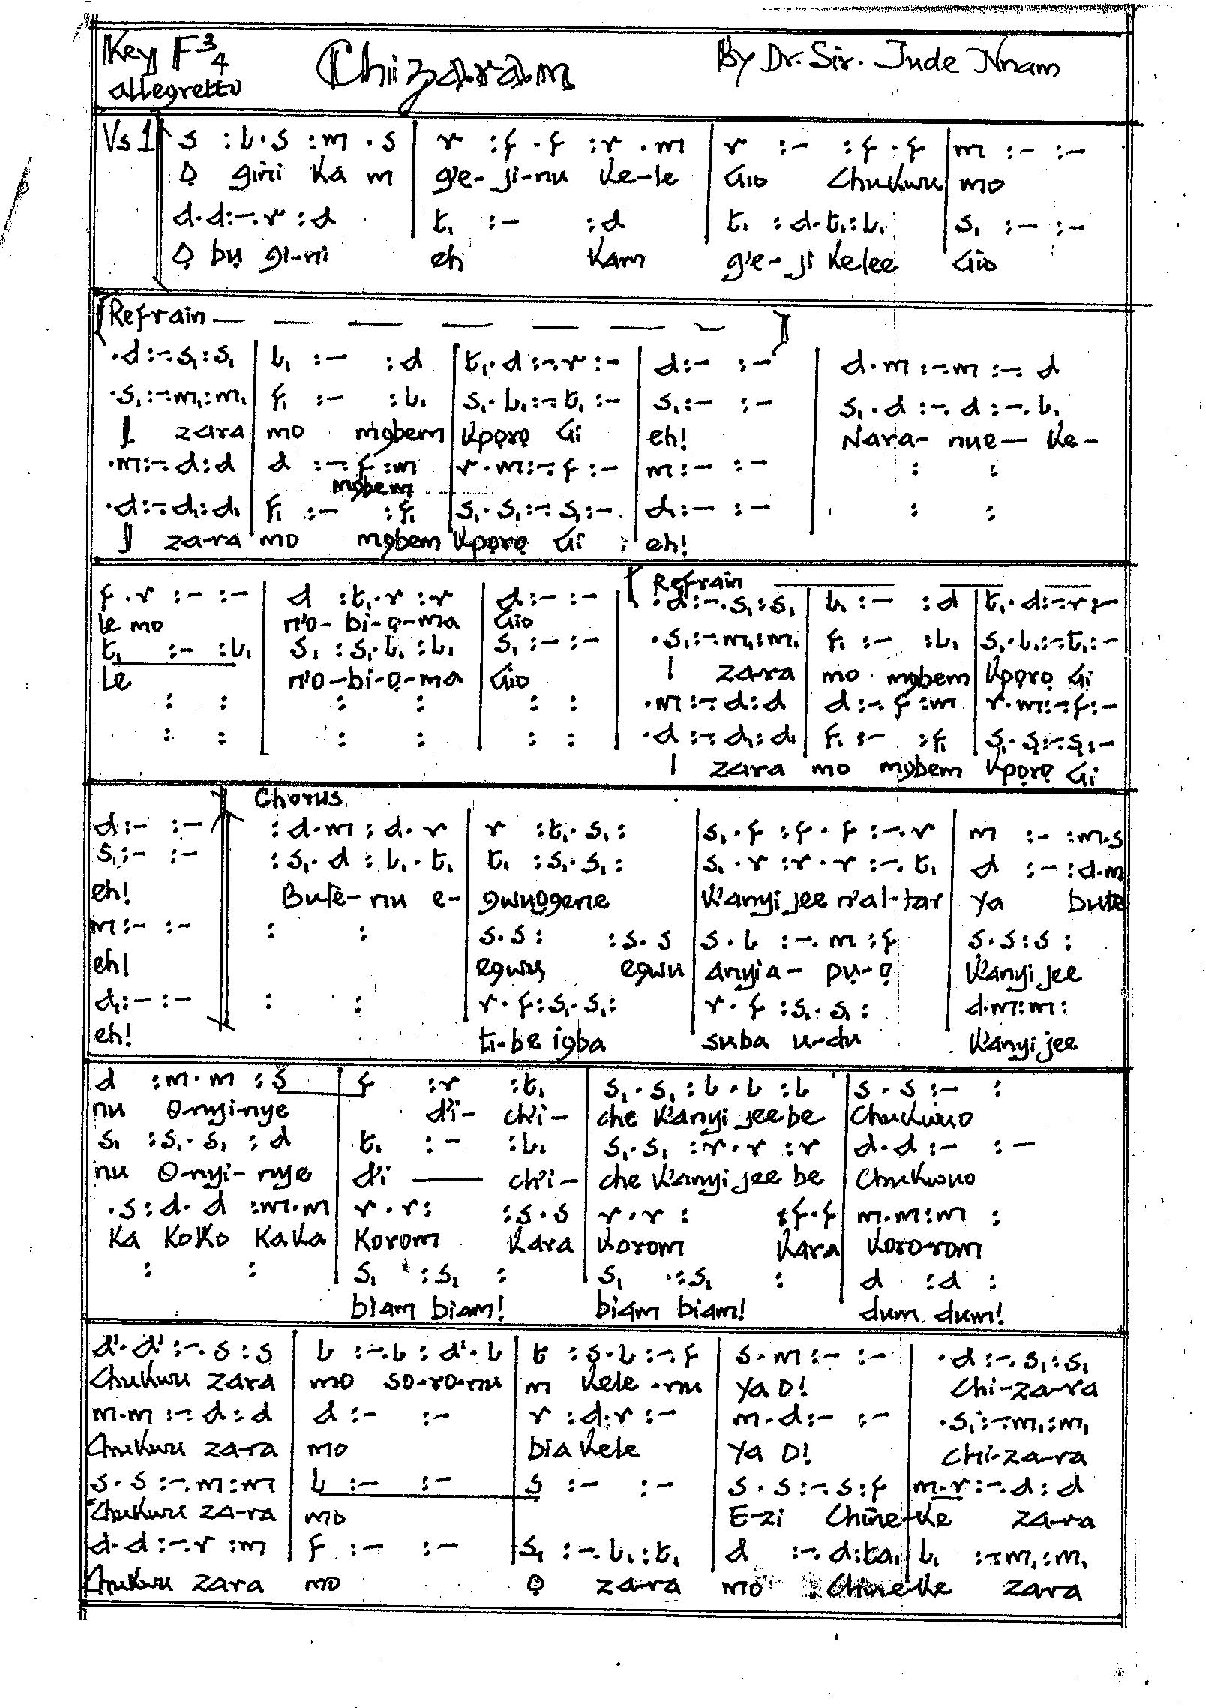 Key F 3/4
allegretto
Chizaram
By Dr. Sir. Jude Nnam
Vs 1
s :l.s :m .s | r :f .f :r .m | r :- :f .f | m :- :-
Ọ gini ka m g'e-ji-nu ke-le Gio Chukwu mo
d.d:-.r :d | t₁ :- :d | t₁ : d.t₁:l₁ | s₁ :- :-
Ọ bụ gi-ni eh kam g'e-ji kelee Gio
Refrain
.d:-.s₁:s₁ | l₁ :- :d | t₁.d:-.r:- | d:- :- | d.m :-.m :-. d
.s₁:-.m₁:m₁ | f₁ :- :l₁ | s₁.l₁:-.t₁ :- | s₁:- :- | s₁.d :-. d :-. l₁
I zara mo mgbem kpọrọ Gi eh! Nara- nue- ke-
.m:-. d:d | d :-.f :m | r.m:-.f :- | m:- :- | : :
mgbem
.d:-.d₁:d₁ | f₁ :- :f₁ | s₁.s₁:-.s₁:- | d₁:- :- | : :
I za-ra mo mgbem kpọrọ Gi eh!
Refrain
f.r :- :- | d :t₁.r :r | d:- :- | .d:-.s₁:s₁ | l₁ :- :d | t₁.d:-.r:-
le mo n'o-bi-ọ-ma Gio
t₁ :- :l₁ | s₁ : s₁.l₁ :l₁ | s₁ :- :- | .s₁:-.m₁:m₁ | f₁ :- :l₁ | s₁.l₁:-.t₁:-
le n'o-bi-ọ-ma Gio I zara mo mgbem kpọrọ Gi
: : | : : | : : | .m:-.d:d | d:-.f :m | r.m:-.f:-
: : | : : | : : | .d:-.d₁:d₁ | f₁ :- :f₁ | s₁.s₁:-.s₁:-
I zara mo mgbem kpọrọ Gi
Chorus
d:- :- | :d.m : d.r | r :t₁.s₁: | s₁.f :f.f :-.r | m :- :m.s
s₁:- :- | :s₁.d : l₁.t₁ | t₁ :s₁.s₁: | s₁.r :r.r :-.t₁ | d :- :d.m
eh! Bute-nu e- gwuọgene Kanyi jee n'al-tar ya bute
m:- :- | : : | s.s: :s.s | s.l :-.m :f | s.s:s :
eh! egwu egwu anyi a- pụ-ọ Kanyi jee
d₁:- :- | : : | r.f:s₁.s₁: | r.f :s₁.s₁: | d.m:m:
eh! ti-be igba suba u-du Kanyi jee
d :m.m :s | f :r :t₁ | s₁.s₁ :l.l :l | s.s :- :
nu O-nyi-nye di- chi- che Kanyi jee be Chukwuo
s₁ :s₁.s₁ :d | t₁ :- :l₁ | s₁.s₁ :r.r :r | d.d :- :-
nu O-nyi-nye di chi- che Kanyi jee be Chukwuo
.s :d.d :m.m | r.r: :s.s | r.r : :f.f | m.m:m :
Ka KoKo KaKa Korom Kara Korom Kara Kororom
: : | s₁ :s₁ : | s₁ :s₁ : | d :d :
biam biam! biam biam! dum dum!
d'.d' :-.s :s | l :-.l : d'.l | t :s.l :-.f | s.m :- :- | .d :-.s₁:s₁
Chukwu zara mo so-ro-nu m kele-nu ya O! Chi-za-ra
m.m :-.d:d | d :- :- | r :d.r :- | m.d:- :- | .s₁:-.m₁:m₁
Chukwu za-ra mo bia kele ya O! Chi-za-ra
s.s :-.m:m | l :- :- | s :- :- | s.s:-.s:f | m.r:-.d:d
Chukwu za-ra mo E-zi Chineke za-ra
d.d :-.r :m | f :- :- | s₁ :-.l₁:t₁ | d :-.d:ta₁ | l₁ :-.m₁:m₁
Chukwu zara mo Ọ za-ra mo Chineke zara